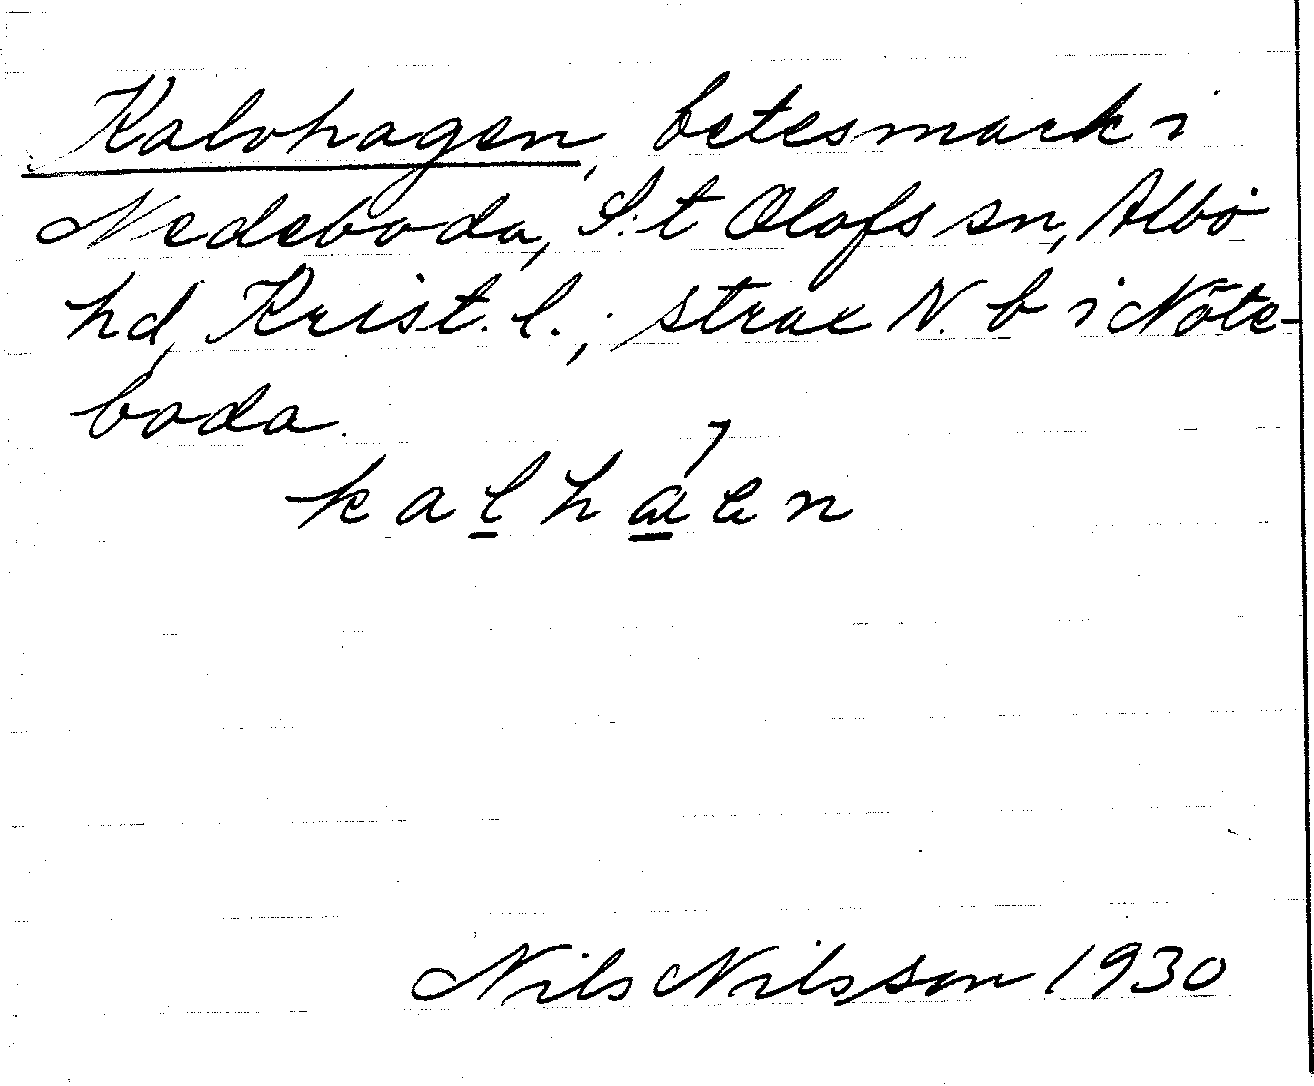 Kalvhagen, betesmark i
Nedeboda, S:t Olofs sn, Albo
hd, Krist. l.; strax N. b i Nöte-
boda.
kalhaen
Nils Nilsson 1930